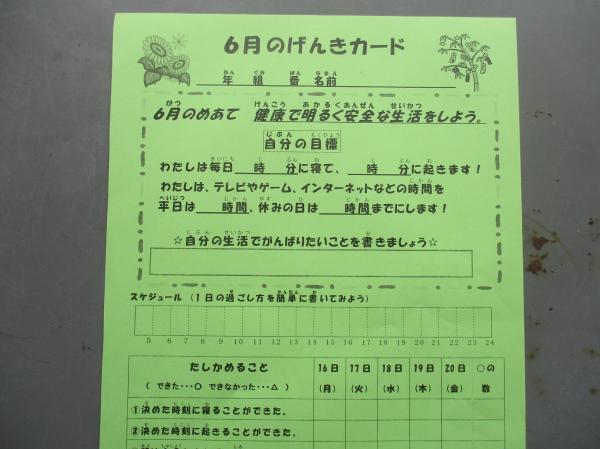 6月のげんきカード
年 組 番 名前
6月のめあて 健康で明るく安全な生活をしよう。
自分の目標
わたしは毎日 時 分に寝て、 時 分に起きます！
わたしは、テレビやゲーム、インターネットなどの時間を
平日は 時間、休みの日は 時間までにします！
☆自分の生活でがんばりたいことを書きましょう☆
スケジュール（１日の過ごし方を簡単に書いてみよう）
5 6 7 8 9 10 11 12 13 14 15 16 17 18 19 20 21 22 23 24
たしかめること 16日 17日 18日 19日 20日 ○の
（ できた・・・○ できなかった・・・△ ） （月） （火） （水） （木） （金） 数
①決めた時刻に寝ることができた。
②決めた時刻に起きることができた。